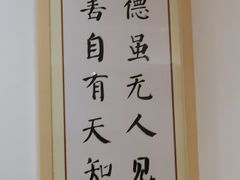 德虽无人见
善自有天知